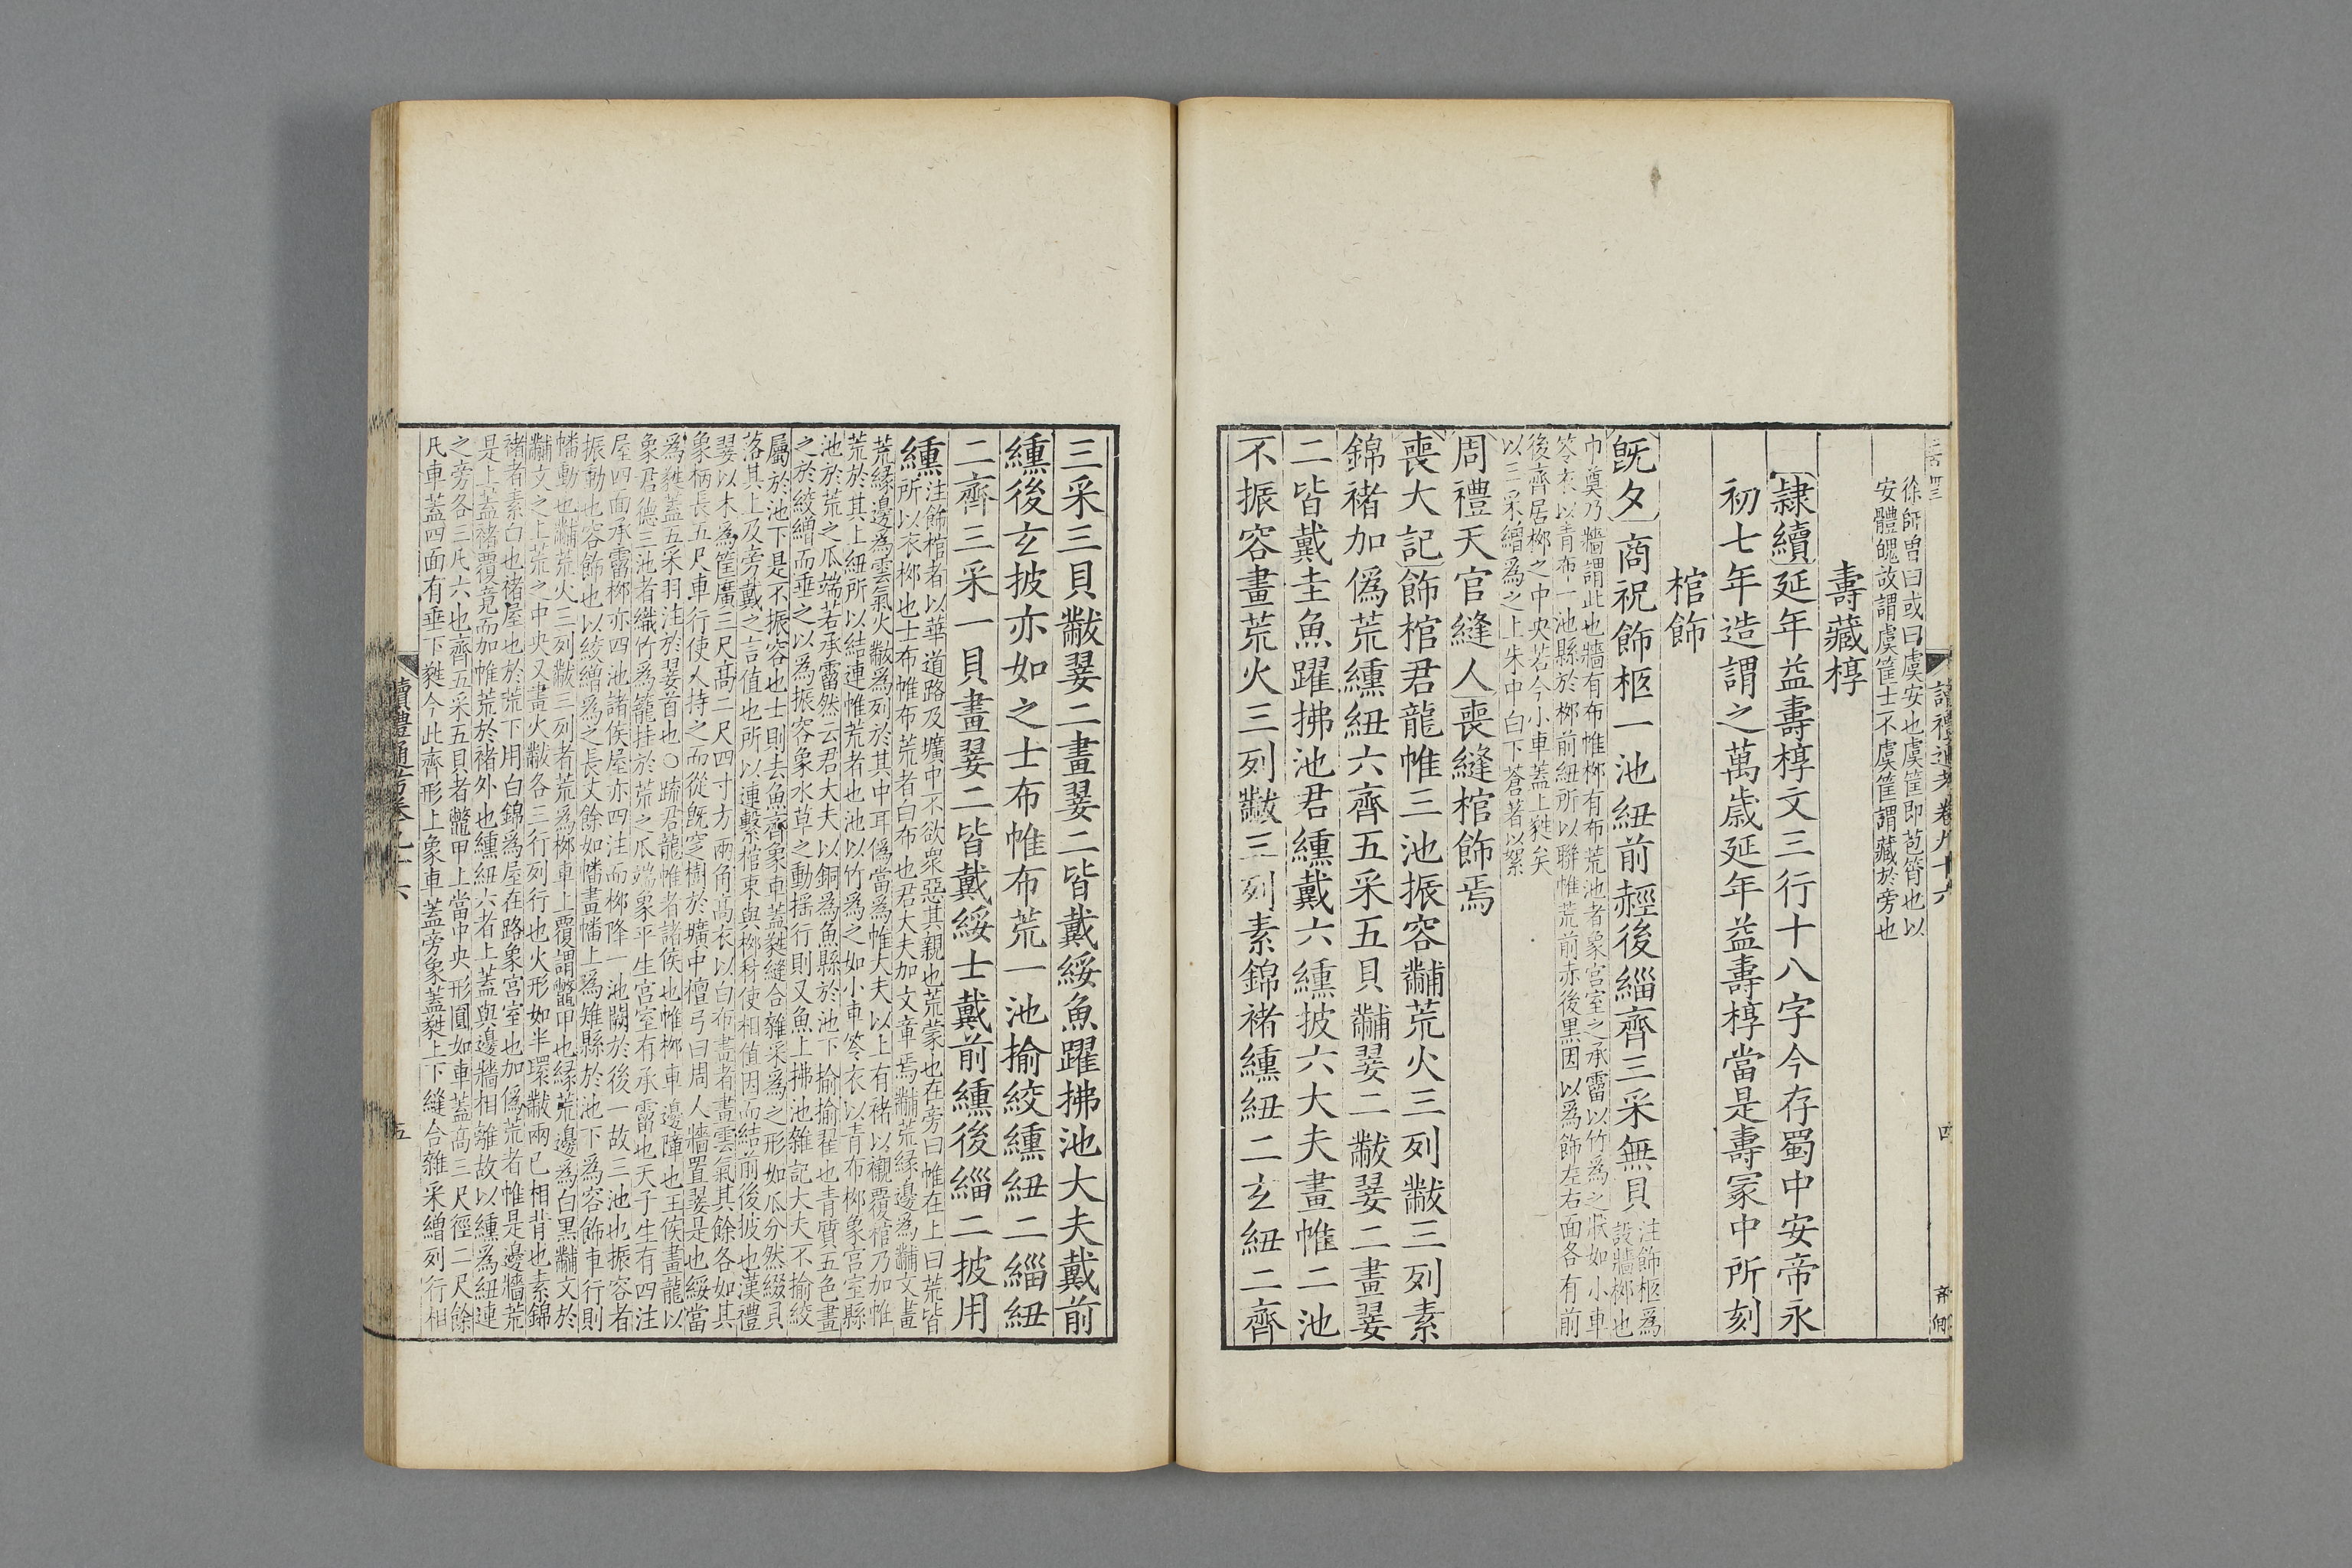 讀禮通考卷九十六
四
徐師曾曰或曰虞安也虞筐即苞筲也以
安體魄故謂虞筐士不虞筐謂藏於旁也
壽藏椁
隸續延年益壽椁文三行十八字今存蜀中安帝永
初七年造謂之萬歲延年益壽椁當是壽冢中所刻
棺飾
旣夕商祝飾柩一池紐前䞓後緇齊三采無貝
注飾柩爲
設牆桺也
巾奠乃牆謂此也牆有布帷桺有布荒池者象宮室之承霤以竹爲之狀如小車
笭衣以青布一池縣於桺前紐所以聯帷荒前赤後黑因以爲飾左右面各有前
後齊居桺之中央若今小車蓋上蕤矣
以三采繒爲之上朱中白下蒼著以絮
周禮天官縫人喪縫棺飾焉
喪大記飾棺君龍帷三池振容黼荒火三列黻三列素
錦褚加僞荒纁紐六齊五采五貝黼翣二黻翣二畫翣
二皆戴圭魚躍拂池君纁戴六纁披六大夫畫帷二池
不振容畫荒火三列黻三列素錦褚纁紐二玄紐二齊
三采三貝黻翣二畫翣二皆戴綏魚躍拂池大夫戴前
纁後玄披亦如之士布帷布荒一池揄絞纁紐二緇紐
二齊三采一貝畫翣二皆戴綏士戴前纁後緇二披用
纁
注飾棺者以華道路及壙中不欲衆惡其親也荒蒙也在旁曰帷在上曰荒皆
所以衣桺也士布帷布荒者白布也君大夫加文章焉黼荒緣邊爲黼文畫
荒緣邊爲雲氣火黻爲列於其中耳僞當爲帷大夫以上有褚以襯覆棺乃加帷
荒於其上紐所以結連帷荒者也池以竹爲之如小車笭衣以青布桺象宮室縣
池於荒之瓜端若承霤然云君大夫以銅爲魚縣於池下揄揄翟也青質五色畫
之於絞繒而垂之以爲振容象水草之動搖行則又魚上拂池雜記大夫不揄絞
屬於池下是不振容也士則去魚齊象車蓋蕤縫合雜采爲之形如瓜分然綴貝
落其上及旁戴之言值也所以連繫棺束與桺材使相值因而結前後披也漢禮
翣以木爲筐廣三尺高二尺四寸方兩角高衣以白布畫者畫雲氣其餘各如其
象柄長五尺車行使人持之而從旣窆樹於壙中檀弓曰周人牆置翣是也綏當
爲蕤蓋五采羽注於翣首也○疏君龍帷者諸侯也帷桺車邊障也王侯畫龍以
象君德三池者織竹爲籠挂於荒之瓜端象平生宮室有承霤也天子生有四注
屋四面承霤桺亦四池諸侯屋亦四注而桺降一池闕於後一故三池也振容者
振動也容飾也以絞繒爲之長丈餘如幡畫幡上爲雉縣於池下爲容飾車行則
幡動也黼荒火三列黻三列者荒爲桺車上覆謂鼈甲也緣荒邊爲白黑黼文於
黼文之上荒之中央又畫火黻各三行列行也火形如半環黻兩已相背也素錦
褚者素白也褚屋也於荒下用白錦爲屋在路象宮室也加僞荒者帷是邊牆荒
是上蓋褚覆竟而加帷荒於褚外也纁紐六者上蓋與邊牆相離故以纁爲紐連
之旁各三凡六也齊五采五貝者鼈甲上當中央形圓如車蓋高三尺徑二尺餘
凡車蓋四面有垂下蕤今此齊形上象車蓋旁象蓋蕤上下縫合雜采繒列行相
讀禮通考卷九十六
五